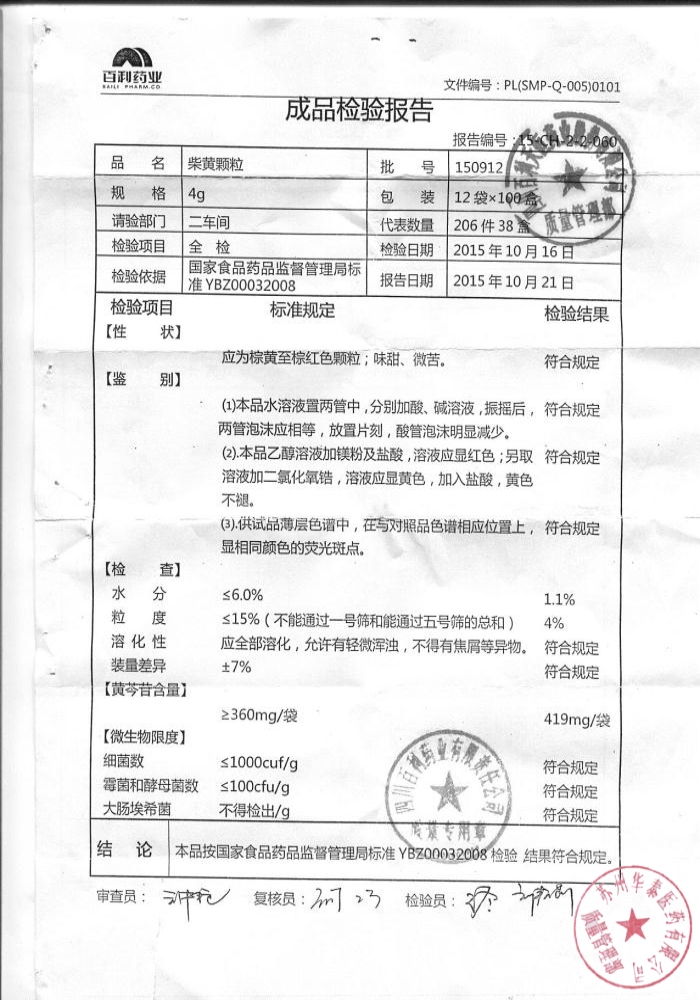 百利药业
BAILI PHARM.CO
文件编号：PL(SMP-Q-005)0101
成品检验报告
报告编号：15-CH-2-2-060
品 名 柴黄颗粒 批 号 150912
规 格 4g 包 装 12袋×100盒
请验部门 二车间 代表数量 206件38盒
检验项目 全 检 检验日期 2015年10月16日
检验依据 国家食品药品监督管理局标准YBZ00032008 报告日期 2015年10月21日
质量管理部
检验项目 标准规定 检验结果
【性 状】
应为棕黄至棕红色颗粒；味甜、微苦。 符合规定
【鉴 别】
(1)本品水溶液置两管中，分别加酸、碱溶液，振摇后， 符合规定
两管泡沫应相等，放置片刻，酸管泡沫明显减少。
(2).本品乙醇溶液加镁粉及盐酸，溶液应显红色；另取 符合规定
溶液加二氯化氧锆，溶液应显黄色，加入盐酸，黄色
不褪。
(3).供试品薄层色谱中，在与对照品色谱相应位置上， 符合规定
显相同颜色的荧光斑点。
【检 查】
水 分 ≤6.0% 1.1%
粒 度 ≤15%（不能通过一号筛和能通过五号筛的总和） 4%
溶 化 性 应全部溶化，允许有轻微浑浊，不得有焦屑等异物。 符合规定
装量差异 ±7% 符合规定
【黄芩苷含量】
≥360mg/袋 419mg/袋
【微生物限度】
细菌数 ≤1000cuf/g 符合规定
霉菌和酵母菌数 ≤100cfu/g 符合规定
大肠埃希菌 不得检出/g 符合规定
四川百利药业有限责任公司
质量专用章
结 论 本品按国家食品药品监督管理局标准YBZ00032008检验,结果符合规定。
审查员： 复核员： 检验员：
苏州华泰医药有限公司
质量管理部